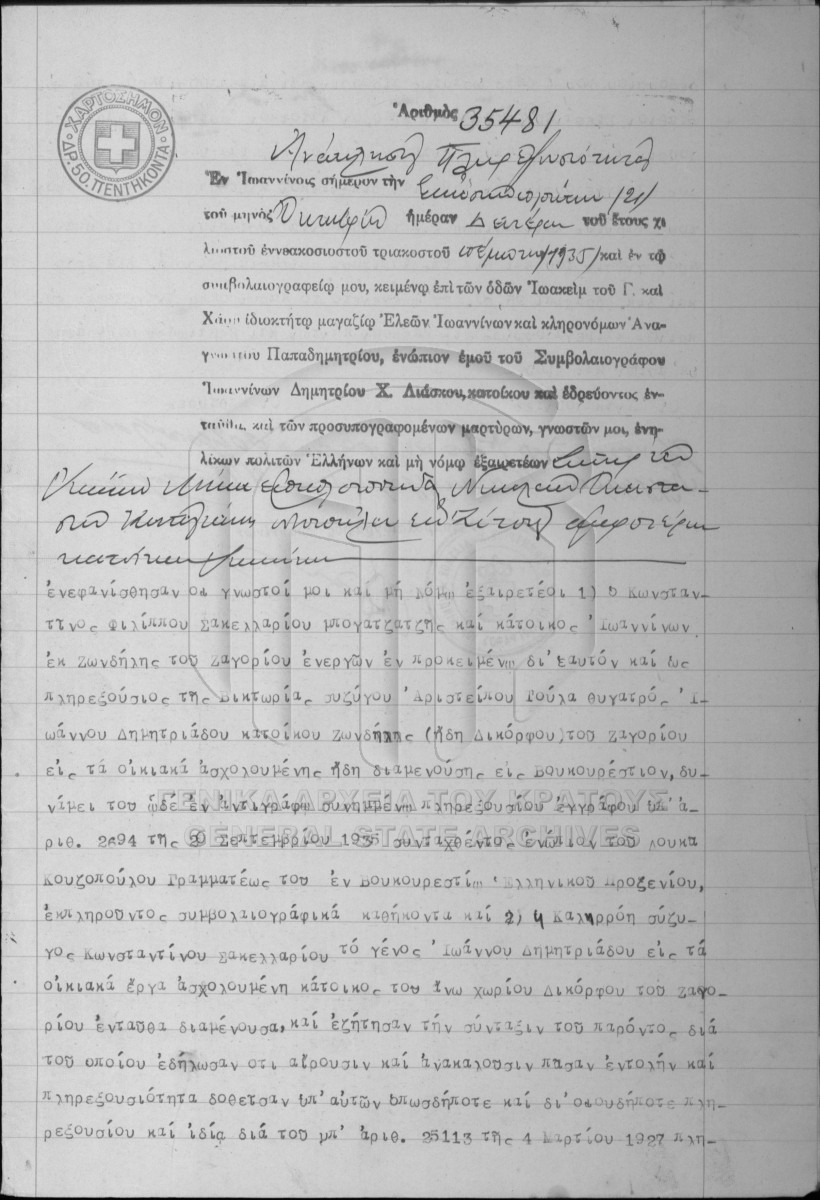 ΧΑΡΤΟΣΗΜΟΝ
ΔΡ. 50. ΠΕΝΤΗΚΟΝΤΑ
Ἀριθμὸς 35481
Ἀνάκλησις Πληρεξουσιότητος
Ἐν Ἰωαννίνοις σήμερον τὴν Εἰκοστὴν πρώτην /21/
τοῦ μηνὸς Ὀκτωβρίου ἡμέραν Δευτέραν τοῦ ἔτους χι
λιοστοῦ ἐννεακοσιοστοῦ τριακοστοῦ πέμπτου /1935/ καὶ ἐν τῷ
συμβολαιογραφείῳ μου, κειμένῳ ἐπὶ τῶν ὁδῶν Ἰωακεὶμ τοῦ Γ. καὶ
ἰδιοκτήτῳ μαγαζίῳ Ἐλεῶν Ἰωαννίνων καὶ κληρονόμων Ἀνα-
γνώστου Παπαδημητρίου, ἐνώπιον ἐμοῦ τοῦ Συμβολαιογράφου
Ἰωαννίνων Δημητρίου Χ. Λιάσκου, κατοίκου καὶ ἑδρεύοντος ἐν-
ταῦθα, καὶ τῶν προσυπογραφομένων μαρτύρων, γνωστῶν μοι, ἐνη-
λίκων πολιτῶν Ἑλλήνων καὶ μὴ νόμῳ ἐξαιρετέων
Νικολάου
κατοίκων
ἐνεφανίσθησαν οι γνωστοί μοι και μή νόμῳ ἐξαιρετέοι 1) ὁ Κωνσταν-
τῖνος Φιλίππου Σακελλαρίου μπογατζατζῆς καί κάτοικος Ἰωαννίνων
ἐκ Ζωνδήλης τοῦ Ζαγορίου ἐνεργῶν ἐν προκειμένῳ δι'ἑαυτόν καί ὡς
πληρεξούσιος τῆς Βικτωρίας συζύγου Ἀριστείπου Γούλα θυγατρός Ἰ-
ωάννου Δημητριάδου κατοίκου Ζωνδήλης (ἤδη Δικόρφου) τοῦ Ζαγορίου
εἰς τά οἰκιακά ἀσχολουμένης ἤδη διαμενούσης εἰς Βουκουρέστιον, δυ-
νάμει τοῦ ὧδέ ἐν ἀντιγράφῳ συνημμένῳ πληρεξουσίου ἐγγράφου ὑπ' ἀ-
ριθ. 2694 τῆς 20 Σεπτεμβρίου 1935 συνταχθέντος ἐνώπιον τοῦ Λουκᾶ
Κουζοπούλου Γραμματέως τοῦ ἐν Βουκουρεστίῳ Ἑλληνικοῦ Προξενίου,
ἐκπληροῦντος συμβολαιογραφικά καθήκοντα καί 2) ἡ Καλιρρόη σύζυ-
γος Κωνσταντίνου Σακελλαρίου τό γένος Ἰωάννου Δημητριάδου εἰς τά
οἰκιακά ἔργα ἀσχολουμένη κάτοικος τοῦ ἄνω χωρίου Δικόρφου τοῦ Ζαγο-
ρίου ἐνταῦθα διαμένουσα, καί ἐζήτησαν τήν σύνταξιν τοῦ παρόντος διά
τοῦ ὁποίου ἐδήλωσαν οτι αἴρουσιν καί ἀνακαλοῦσιν πᾶσαν ἐντολήν καί
πληρεξουσιότητα δοθεῖσαν ὑπ'αὐτῶν ὁπωσδήποτε καί δι'οιουδήποτε πλη-
ρεξουσίου καί ἰδίᾳ διά τοῦ ὑπ' ἀριθ. 25113 τῆς 4 Μαρτίου 1927 πλη-
ΓΕΝΙΚΑ ΑΡΧΕΙΑ ΤΟΥ ΚΡΑΤΟΥΣ
GENERAL STATE ARCHIVES